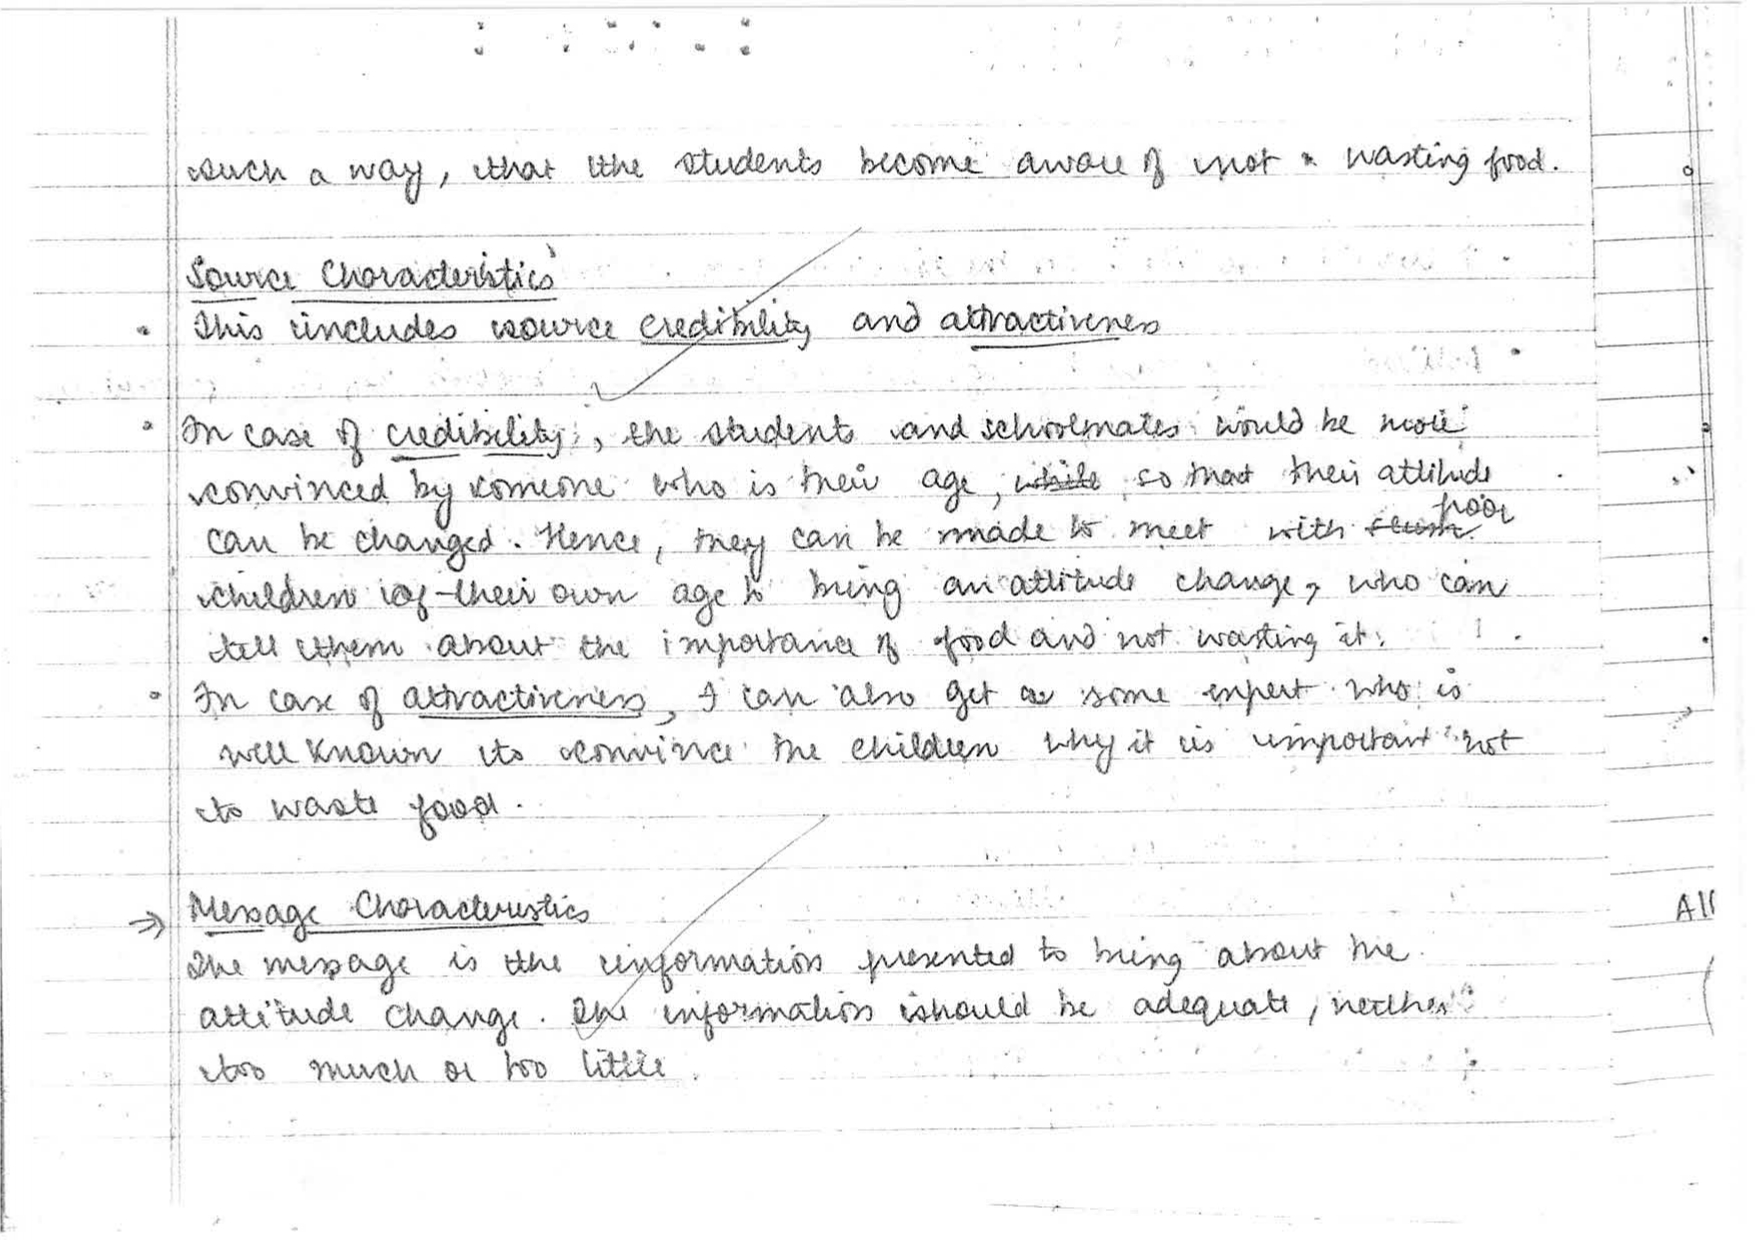 such a way, that the students become aware of not wasting food.
Source Characteristics
• This includes source credibility and attractiveness
• In case of credibility, the students and schoolmates would be more
convinced by someone who is their age, while so that their attitude
can be changed. Hence, they can be made to meet with slum poor
children of their own age to bring an attitude change, who can
tell them about the importance of food and not wasting it.
• In case of attractiveness, I can also get a some expert who is
well known to convince the children why it is important not
to waste food.
→ Message Characteristics
The message is the information presented to bring about the
attitude change. The information should be adequate, neither
too much or too little.